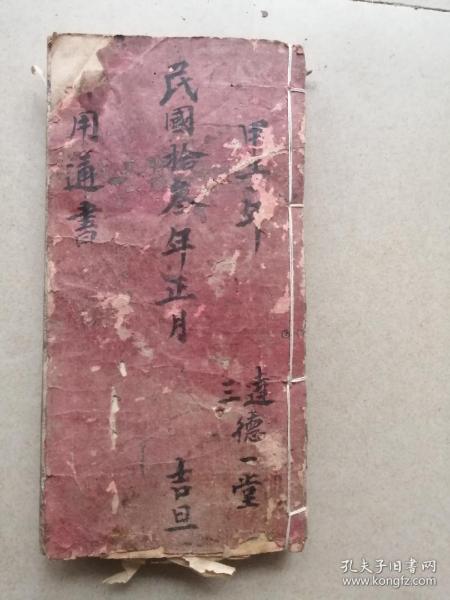 達德一堂
三
民國拾叄年正月
吉旦
用通書
孔夫子旧书网
www.kongfz.com